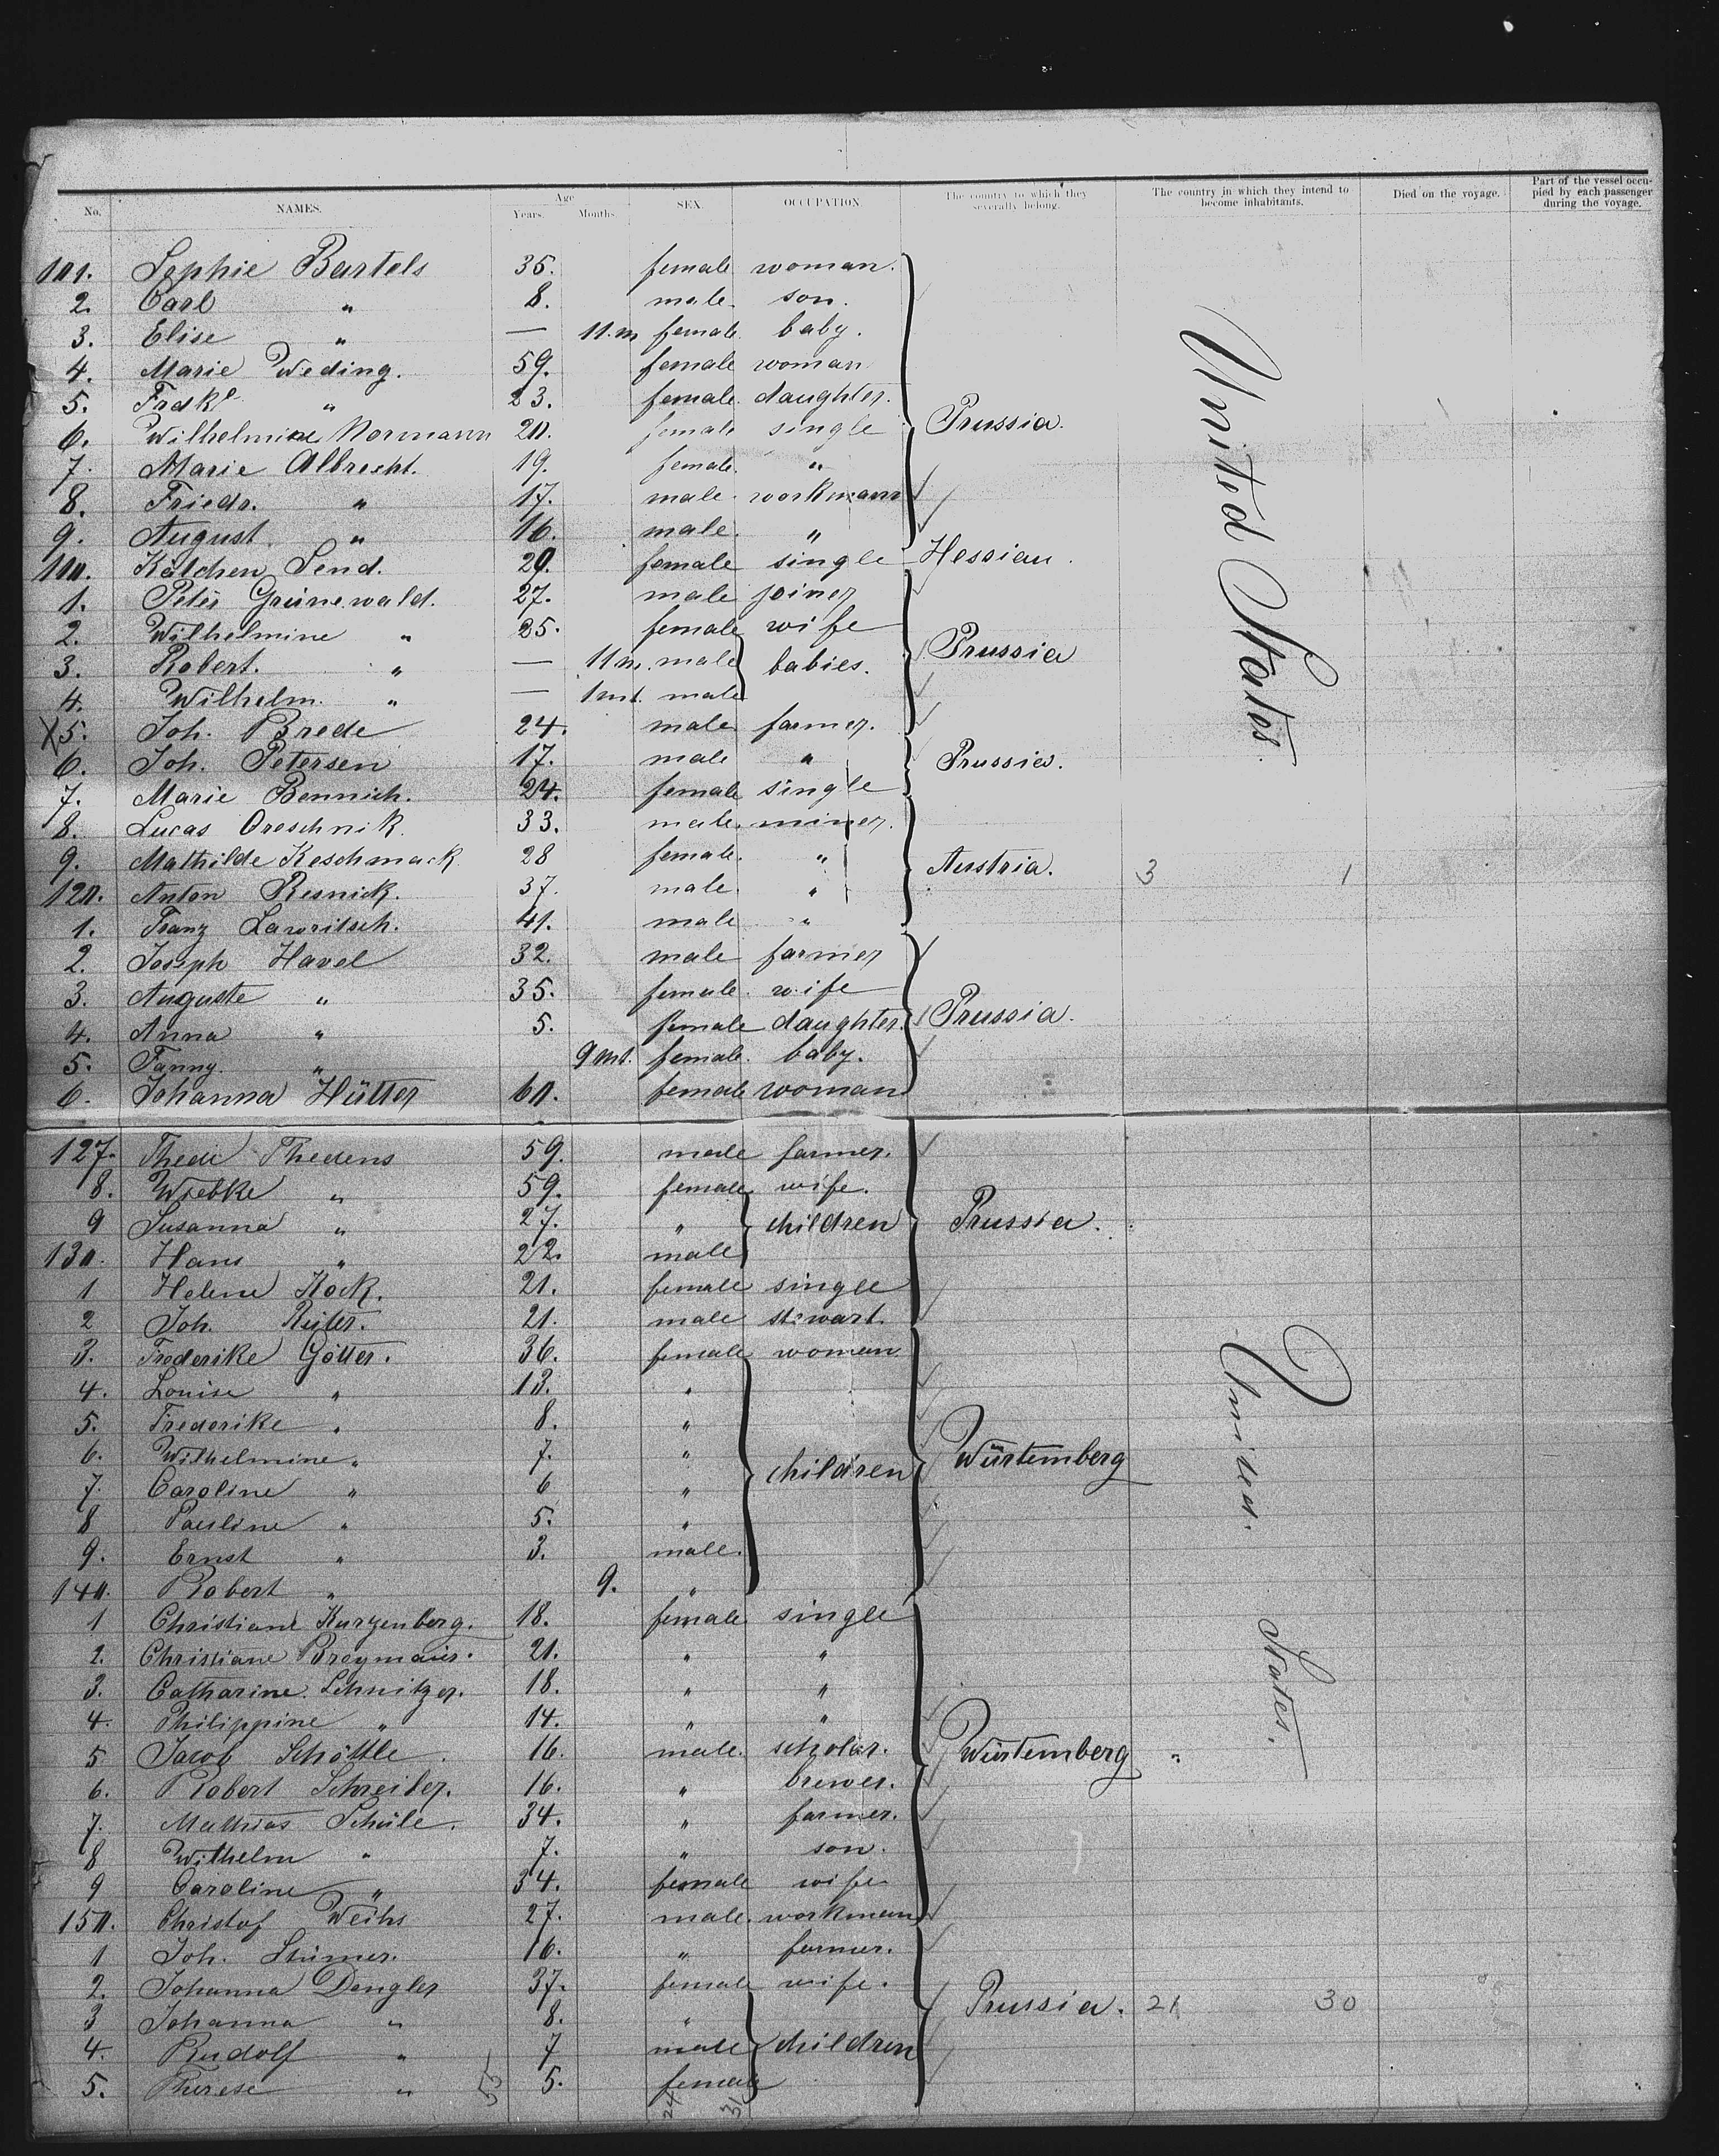 No. NAMES. Age Years. Months. SEX. OCCUPATION The country to which they severally belong. The country in which they intend to become inhabitants. Died on the voyage. Part of the vessel occupied by each passenger during the voyage.
101. Sophie Bartels 35. female woman.
2. Carl " 8. male son.
3. Elise " — 11.m female baby.
4. Marie Weding. 59. female woman
5. " 23. female daughter.
6. Wilhelmine Normann 20. female single Prussia.
7. Marie Albrecht. 19. female "
8. Friedr. " 17. male workmann
9. August " 16. male "
110. Kätchen Send. 20. female single Hessian.
1. Peter Grünewald. 27. male joiner
2. Wilhelmine " 25. female wife Prussia
3. Robert. " — 11m. male babies.
4. Wilhelm. " — 1mt. male
X5. Joh. Brede 24. male farmer.
6. Joh. Petersen 17. male " Prussia.
7. Marie Bennich. 24. female single
8. Lucas Oreschnik. 33. male miner.
9. Mathilde Keschmack 28 female. " Austria. 3 1
120. Anton Resnick. 37. male "
1. Franz Lawritsch. 41. male "
2. Joseph Havel 32. male farmer
3. Auguste " 35. female wife
4. Anna " 5. female daughter. Prussia.
5. Fanny. " 9 mt. female baby.
6. Johanna Hütter 60. female woman
United States
127. Thede Thedens 59. male farmer.
8. Wiebke " 59. female wife.
9 Susanna " 27. " children Prussia.
130. Hans " 22. male
1 Helene Kock. 21. female single
2 Joh. Reiter. 21. male stewart.
3. Frederike Götter. 36. female woman
4. Louise " 13. "
5. Frederike " 8. "
6. Wilhelmine " 7. " children Würtemberg
7. Caroline " 6 "
8 Pauline " 5. "
9. Ernst " 3. male.
140. Robert " 9. "
1 Christiane Kurzenberg. 18. female single
2. Christiane 21. " "
3. Catharine Schnitzer. 18. " "
4. Philippine " 14. " "
5 Jacob Schöttle. 16. male. scholar. Würtemberg "
6. Robert Schreiber. 16. " brewer.
7. Mathias Schüle. 34. " farmer.
8 Wilhelm " 7. " son.
9 Caroline " 34. female wife
150. Christof Weihs 27. male. workman
1 Joh. Stümer. 16. " farmer.
2. Johanna Dengler 37. female wife.
3 Johanna " 8. " Prussia. 21 30
4. Rudolf " 7 male children
5. Therese " 5. female
United States.
55 24 31